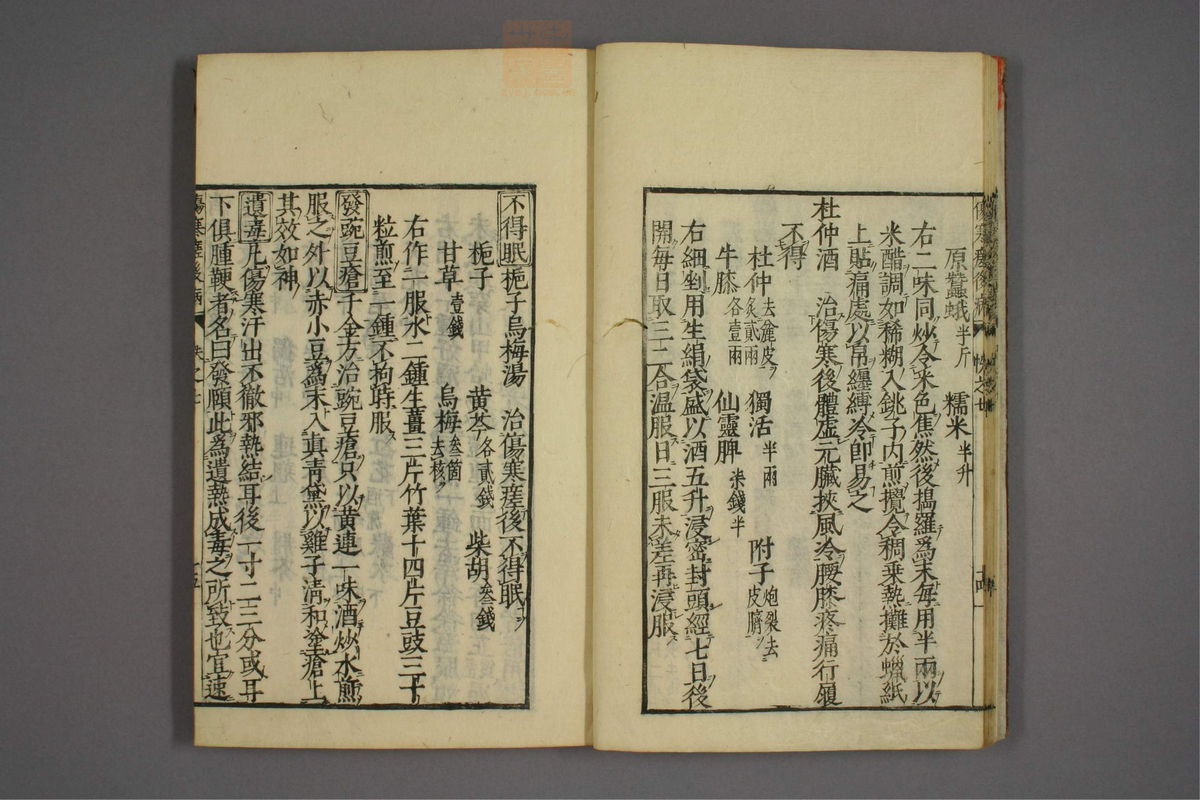 原蠶蛾半斤　糯米半升
右二味同炒令米色焦然後搗羅爲末每用半兩以
米醋調如稀糊入銚子内煎攪令稠乗熱攤於蠟紙
上貼痛處以帛纏縛冷卽易之
杜仲酒　治傷寒後體虛元臟挾風冷腰膝疼痛行履
不得
杜仲去麄皮炙貳兩　獨活半兩　附子炮裂去皮臍
牛膝各壹兩　仙靈脾柒錢半
右細剉用生絹袋盛以酒五升浸密封頭經七日後
開毎日取三二合温服日三服未差再浸服
不得眠梔子烏梅湯　治傷寒瘥後不得眠
梔子　黄芩各貳錢　柴胡叁錢
甘草壹錢　烏梅叁箇去核
右作一服水二鍾生薑三片竹葉十四片豆豉三十
粒煎至一鍾不拘時服
發豌豆瘡千金方治豌豆瘡只以黄連一味酒炒水煎
服之外以赤小豆爲末入真青黛以雞子清和塗瘡上
其效如神
遺毒凡傷寒汗出不徹邪熱結耳後一寸二三分或耳
下俱腫鞕者名曰發頤此爲遺熱成毒之所致也宜速